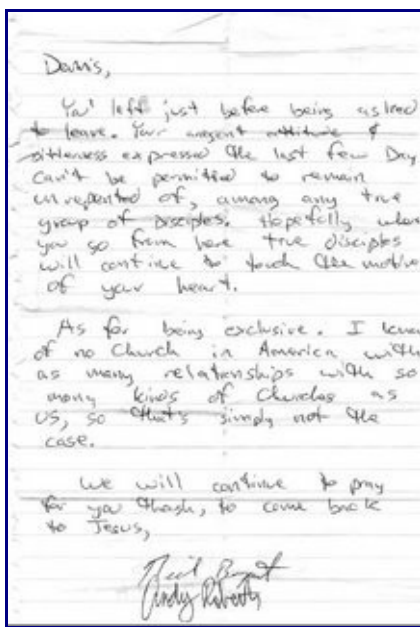 Dennis,
You left just before being asked
to leave. Your arrogant attitude &
bitterness expressed the last few Day
can't be permitted to remain
unrepented of, among any true
group of Disciples. Hopefully where
you go from here true disciples
will continue to touch the motive
of your heart.
As for being exclusive. I know
of no Church in America with
as many relationships with so
many kinds of Churches as
us, so that's simply not the
case.
We will continue to pray
for you though, to come back
to Jesus,
Andy Roberts